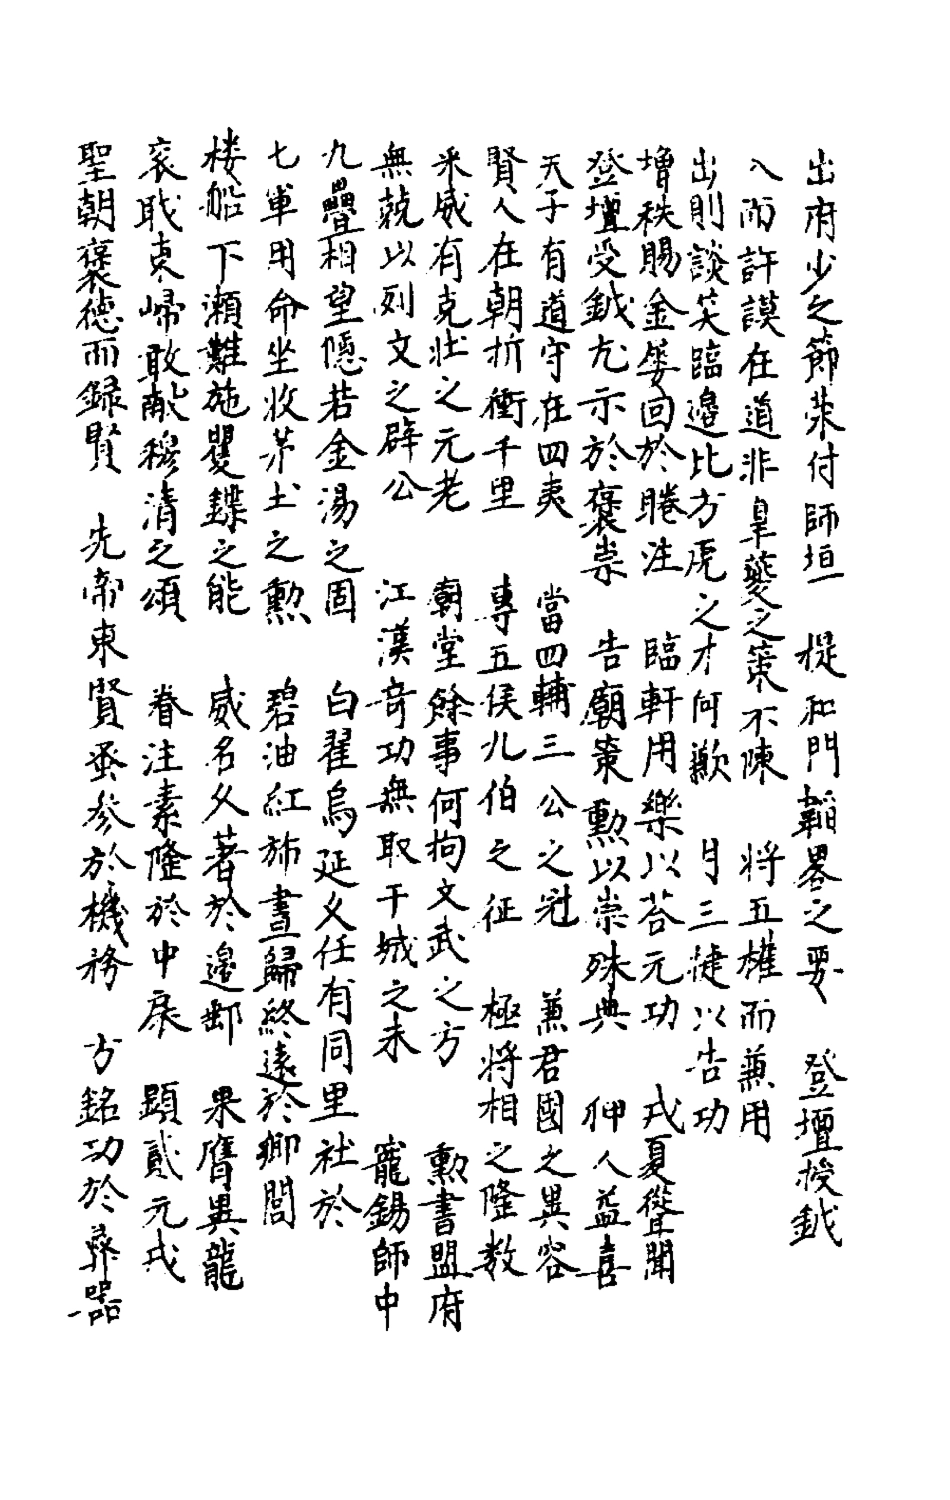 出府少之節荣付師垣　提和門韜畧之要　登壇授鉞
入而訏謨在道非皐夔之策不陳　将五權而兼用
出則談笑臨邉比方虎之才何歉　月三徤以告功
增秩賜金屡回於睠注　臨軒用樂以荅元功　戎夏聳聞
登壇受鉞尤示於襃崇　告廟䇿勲以崇殊典　神人益喜
天子有道守在四夷　當四輔三公之冠　兼君國之異容
賢人在朝折衝千里　專五侯九伯之征　極将相之隆数
釆威有克壮之元老　廟堂餘事何拘文武之方　勲書盟府
無兢以列文之辟公　江漢竒功無取干城之未　寵錫師中
九疊相望隠若金湯之固　白翟烏延久任有同里社於
七軍用命坐收茅土之勲　碧油紅斾晝歸終遠於郷閭
楼船下瀨難施矍鑠之能　威名久著於邉郵　果膺異寵
衮戢東歸敢献穆清之頌　眷注素隆於中扆　顕貳元戎
聖朝襃德而録賢　先帝東賢蚤参於機務　方銘功於彛器